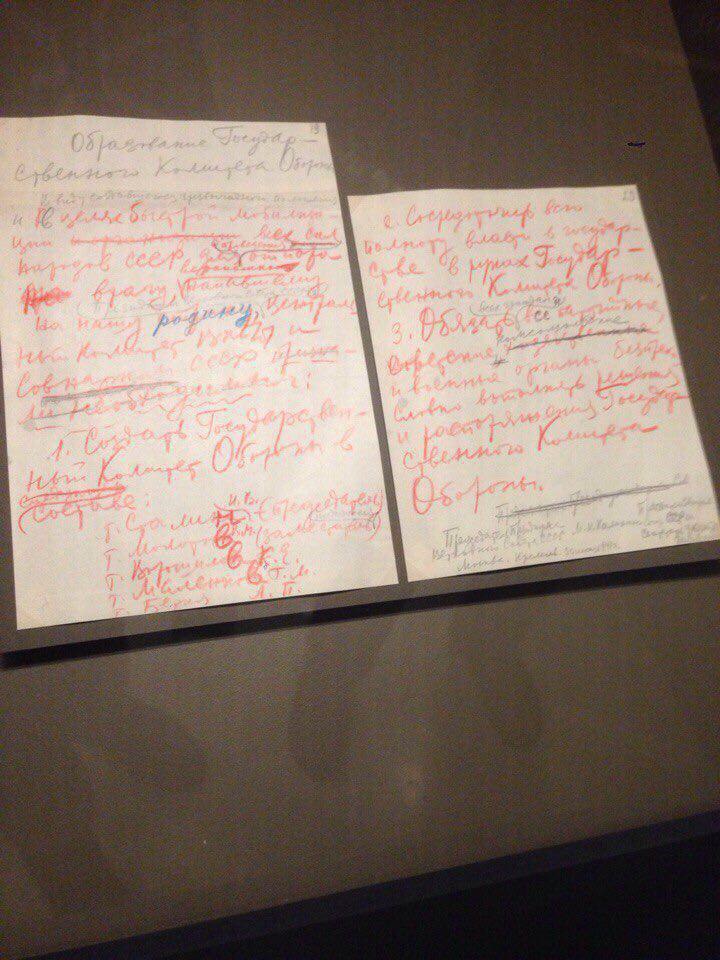 Образование Государ-
ственного Комитета Обороны
В виду создавшегося чрезвычайного положения
и В целях быстрой мобилиза-
ции всех сил
народов СССР для отпора
врагу напавшему
на нашу родину, Централь
ный Комитет ВКП(б) и
Совнарком СССР призна-
ли необходимым:
1. Создать Государствен-
ный Комитет Обороны в
составе:
т. Сталин И.В. (председатель)
т. Молотов В.М. (заместитель)
т. Ворошилов К.Е.
т. Маленков Г.М.
т. Берия Л.П.
2. Сосредоточить всю
полноту власти в государ-
стве в руках Государ-
ственного Комитета Обороны.
3. Обязать все партийные,
комсомольские
советские
и военные органы беспреко-
словно выполнять решения
и распоряжения Государ-
ственного Комитета
Обороны.
Председатель Президиума
Верховного Совета СССР М. Калинин
Москва. Кремль